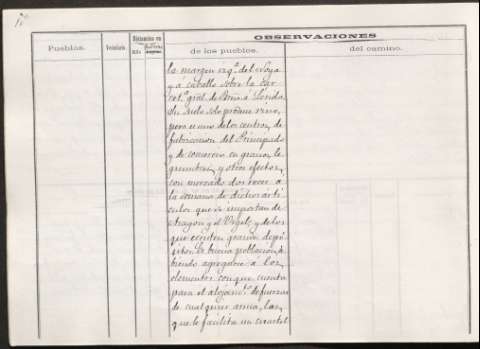 OBSERVACIONES
Pueblos. Vecindario Distancias en de los pueblos. del camino.
la margen izq.ª del Noya
y á caballo sobre la car
ret.ª gral. de Barna á Lerida.
Su suelo solo produce vino,
pero es uno de los centros de
fabricacion del Principado
y de comercio en granos, le
gumbres, y otros efectos,
con mercado dos veces á
la semana de dichos artí
culos que se importan de
Aragon y el Urgel, y de los
que existen grandes depó
sitos. Es buena poblacion, de
biendo agregarse á los
elementos con que cuenta
para el alojam.to de fuerzas
de cualquier arma, las
que le facilita un cuartel